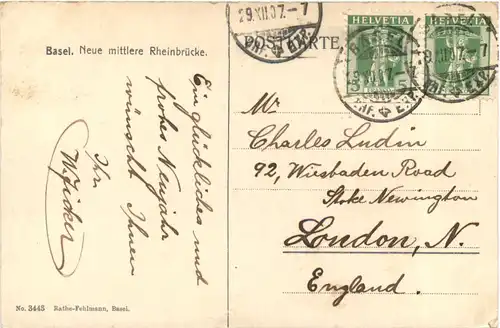 Basel. Neue mittlere Rheinbrücke.
29.XII.07.-7
POSTKARTE
HELVETIA
HELVETIA
Ein glückliches und
frohes Neujahr
wünscht Ihnen
Ihr
Mr
Charles Ludin
92, Wiesbaden Road
Stoke Newington
London, N.
England.
No. 3445 Rathe-Fehlmann, Basel.